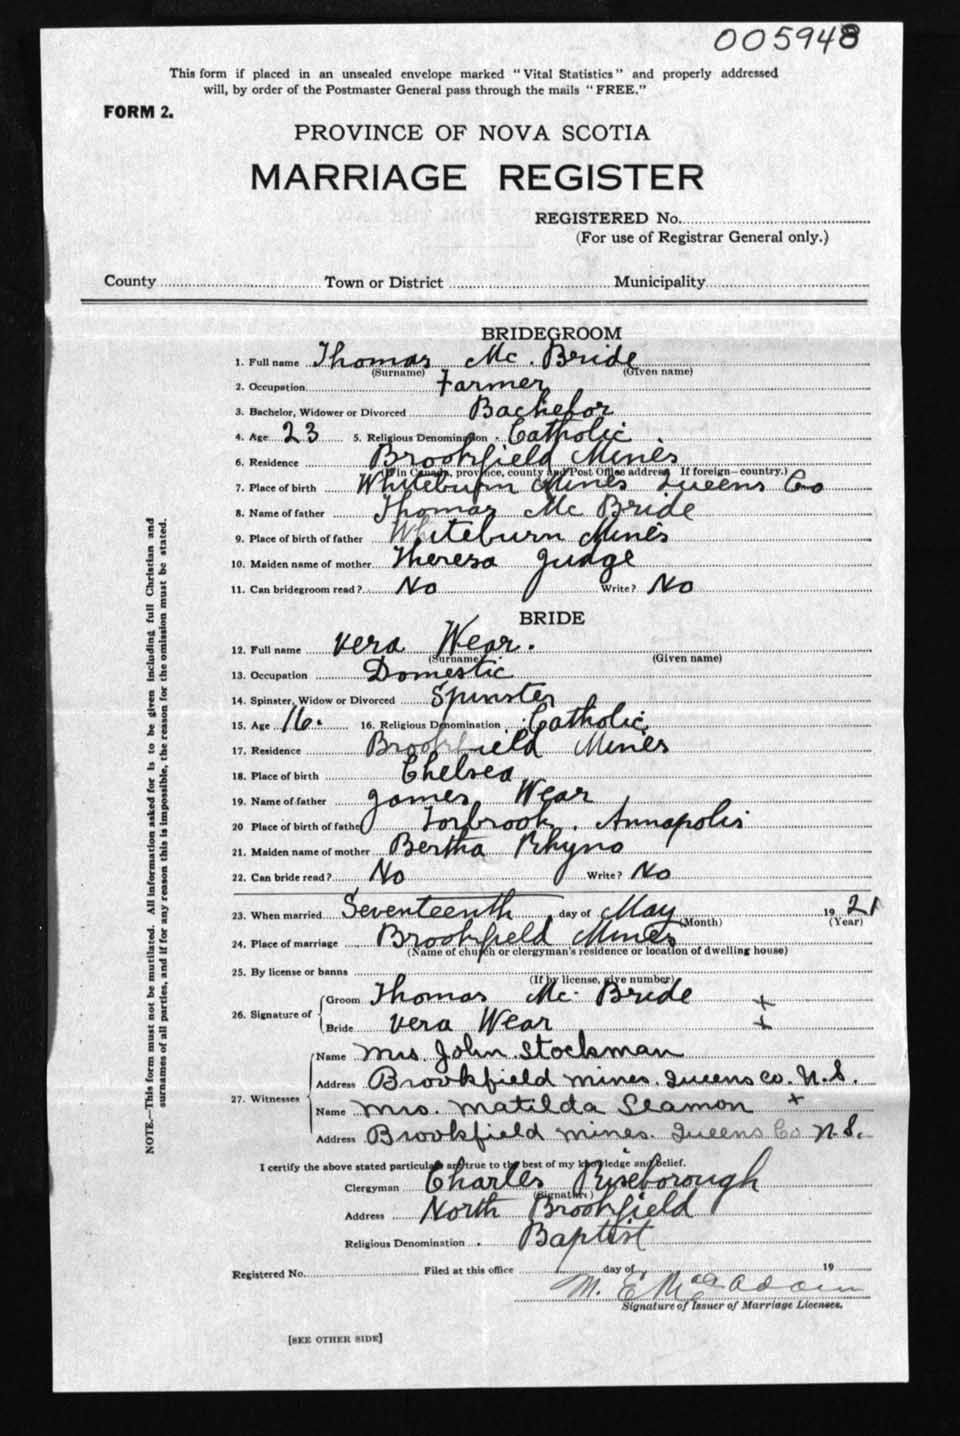 005948
This form if placed in an unsealed envelope marked "Vital Statistics" and properly addressed
will, by order of the Postmaster General pass through the mails "FREE."
FORM 2.
PROVINCE OF NOVA SCOTIA
MARRIAGE REGISTER
REGISTERED No.
(For use of Registrar General only.)
County Town or District Municipality
BRIDEGROOM
1. Full name Thomas Mc. Bride
(Surname) (Given name)
2. Occupation Farmer
3. Bachelor, Widower or Divorced Bachelor
4. Age 23 5. Religious Denomination Catholic
6. Residence Brookfield Mines
(If in Canada, province, county and Post Office address. If foreign—country.)
7. Place of birth Whiteburn Mines Queens Co
8. Name of father Thomas Mc Bride
9. Place of birth of father Whiteburn Mines
10. Maiden name of mother Theresa Judge
11. Can bridegroom read? No Write? No
BRIDE
12. Full name Vera Wear.
(Surname) (Given name)
13. Occupation Domestic
14. Spinster, Widow or Divorced Spinster
15. Age 16. 16. Religious Denomination Catholic
17. Residence Brookfield Mines
18. Place of birth Chelsea
19. Name of father James Wear
20 Place of birth of father Torbrook. Annapolis
21. Maiden name of mother Bertha Rhyno
22. Can bride read? No Write? No
23. When married Seventeenth day of May 1921
(Month) (Year)
24. Place of marriage Brookfield Mines
(Name of church or clergyman's residence or location of dwelling house)
25. By license or banns
(If by license, give number)
26. Signature of
Groom Thomas Mc. Bride x
Bride Vera Wear x
27. Witnesses
Name Mrs. John Stockman
Address Brookfield mines. Queens co. N.S.
Name Mrs. Matilda Seamon x
Address Brookfield mines. Queens Co N.S.
I certify the above stated particulars are true to the best of my knowledge and belief.
Clergyman Charles Riseborough
(Signature)
Address North Brookfield
Religious Denomination Baptist
Registered No. Filed at this office day of 19
M. E. MacAdam
Signature of Issuer of Marriage Licenses.
[SEE OTHER SIDE]
NOTE.—This form must not be mutilated. All information asked for is to be given including full Christian and
surnames of all parties, and if for any reason this is impossible, the reason for the omission must be stated.